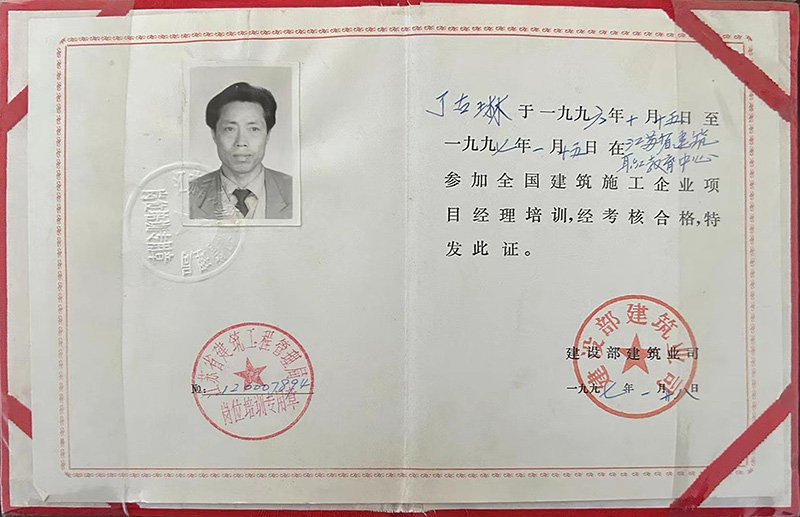 丁吉琳于一九九六年十月十五日至
一九九七年一月十五日在江苏省建筑
职工教育中心
参加全国建筑施工企业项
目经理培训,经考核合格,特
发此证。
建设部建筑业司
建设部建筑业司
一九九七年一月廿八日
江苏省建筑工程管理局
№: 120007894
岗位培训专用章
岗位培训专用章